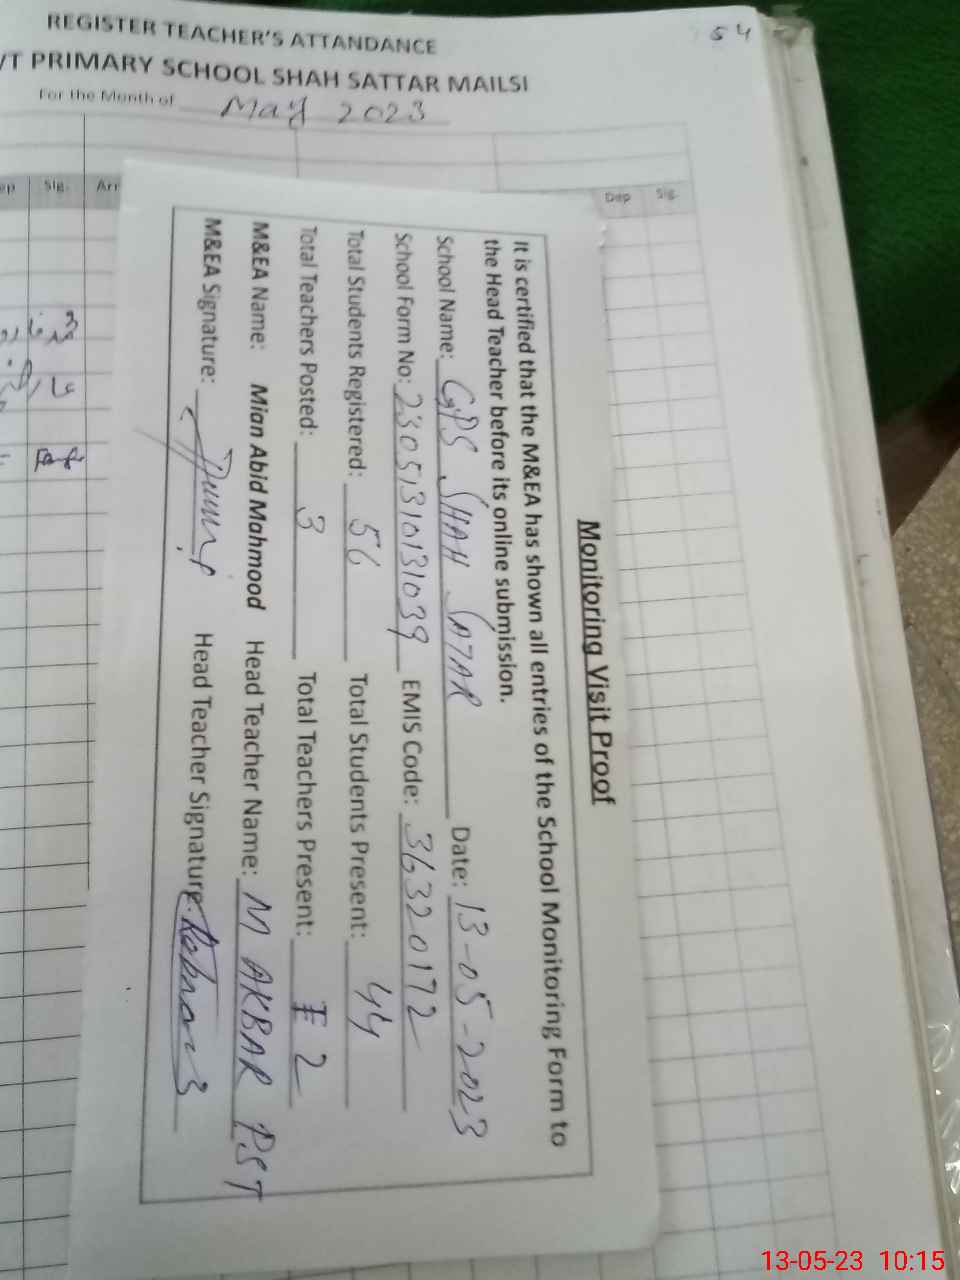 54
REGISTER TEACHER'S ATTANDANCE
VT PRIMARY SCHOOL SHAH SATTAR MAILSI
For the Month of May 2023
ep Sig. Arr Dep Sig.
Monitoring Visit Proof
It is certified that the M&EA has shown all entries of the School Monitoring Form to
the Head Teacher before its online submission.
School Name: GPS SHAH SATAR Date: 13-05-2023
School Form No: 23051310131039 EMIS Code: 36320172
Total Students Registered: 56 Total Students Present: 44
Total Teachers Posted: 3 Total Teachers Present: 2
M&EA Name: Mian Abid Mahmood Head Teacher Name: M AKBAR PST
M&EA Signature: Head Teacher Signature:
13-05-23 10:15